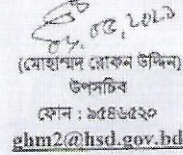 ০৮.০৫.২০২৩
(মোহাম্মদ রোকন উদ্দিন)
উপসচিব
ফোন : ৯৫৪৬৫২০
ghm2@hsd.gov.bd